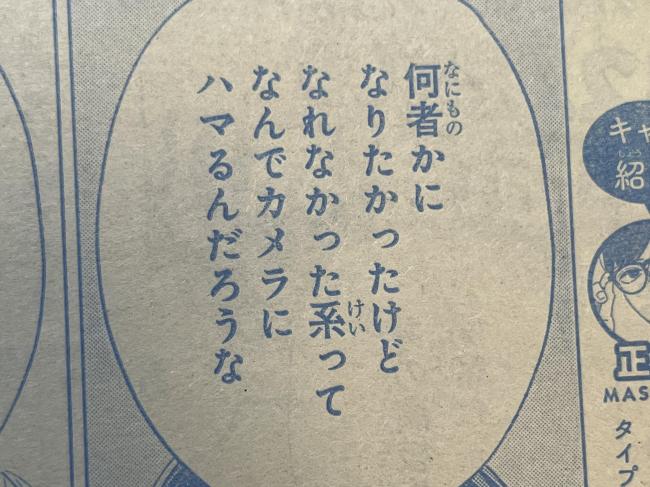 何者かに
なりたかったけど
なれなかった系って
なんでカメラに
ハマるんだろうな
キャ
紹
正
MAS
タイプ